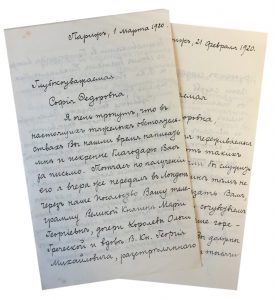 Парижъ, 1 Марта 1920.
Глубокоуважаемая
Софія Ѳедоровна
Я очень тронутъ, что въ
настоящихъ тяжелыхъ обстоятель-
ствахъ Вы нашли время написать
мнѣ и искренне благодарю Васъ
за письмо. Тотчасъ по полученіи
его я вчера же передалъ въ Лондонъ
черезъ наше Посольство Вашу теле-
грамму Великой Княгинѣ Маріи
Георгіевнѣ, дочери Королевы Ольги
Греческой и вдовѣ В. Кн. Георгія
Михайловича, разстрѣляннаго
рижъ, 21 Февраля 1920.
аемая
оровна,
такихъ